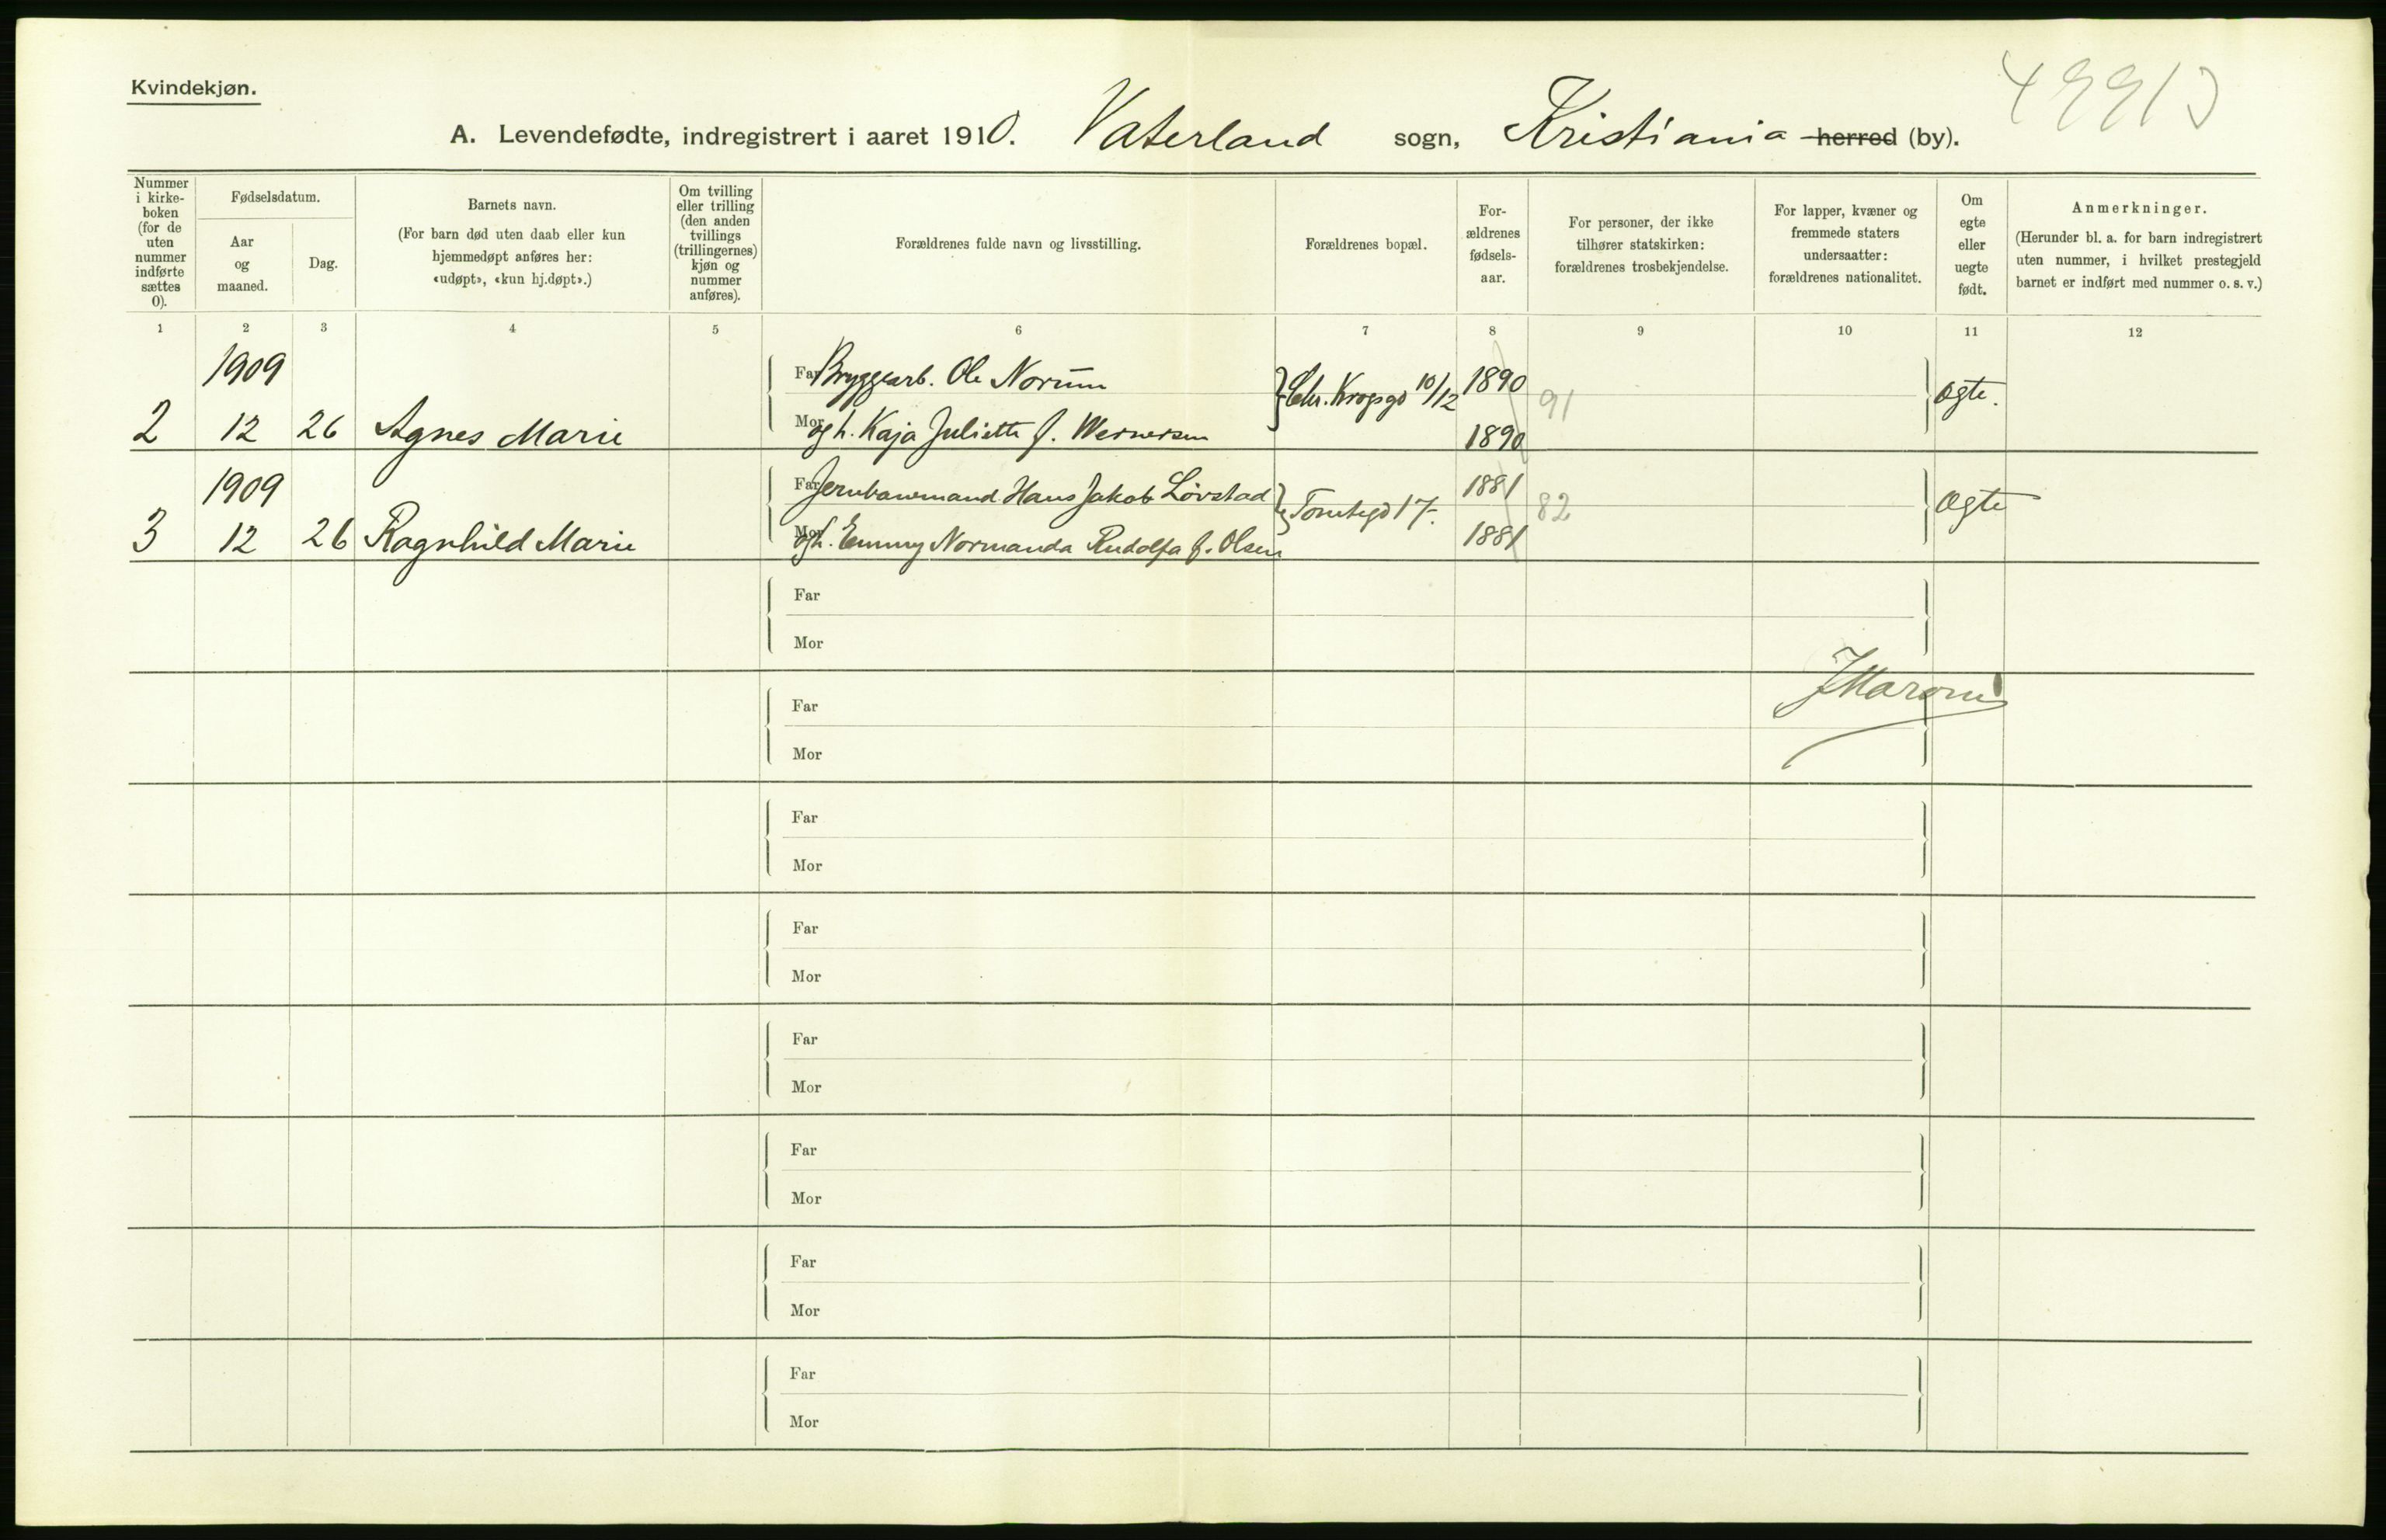 Kvindekjøn.
A. Levendefødte, indregistrert i aaret 1910. Vaterland sogn, Kristiania herred (by).
Nummer i kirke-boken (for de uten nummer indførte sættes 0).
Fødselsdatum.
Aar og maaned.
Dag.
Barnets navn.
(For barn død uten daab eller kun hjemmedøpt anføres her: «udøpt», «kun hj.døpt».)
Om tvilling eller trilling (den anden tvillings (trillingernes) kjøn og nummer anføres).
Forældrenes fulde navn og livsstilling.
Forældrenes bopæl.
For-ældrenes fødsels-aar.
For personer, der ikke tilhører statskirken: forældrenes trosbekjendelse.
For lapper, kvæner og fremmede staters undersaatter: forældrenes nationalitet.
Om egte eller uegte født.
Anmerkninger.
(Herunder bl. a. for barn indregistrert uten nummer, i hvilket prestegjeld barnet er indført med nummer o. s. v.)
1 2 3 4 5 6 7 8 9 10 11 12
1909 Far Bryggearb. Ole Norum Chr. Krogsgd 10/12 1890 91 Ægte.
2 12 26 Agnes Marie Mor og h. Kaja Juliette f. Wernersen 1890
1909 Far Jernbanemand Hans Jakob Lövstad Tomtegd 17. 1881 82 Ægte
3 12 26 Ragnhild Marie Mor og h. Emmy Normanda Rudolfa f. Olsen 1881
Far
Mor
Far
Mor
Far
Mor
Far
Mor
Far
Mor
Far
Mor
Far
Mor
Far
Mor